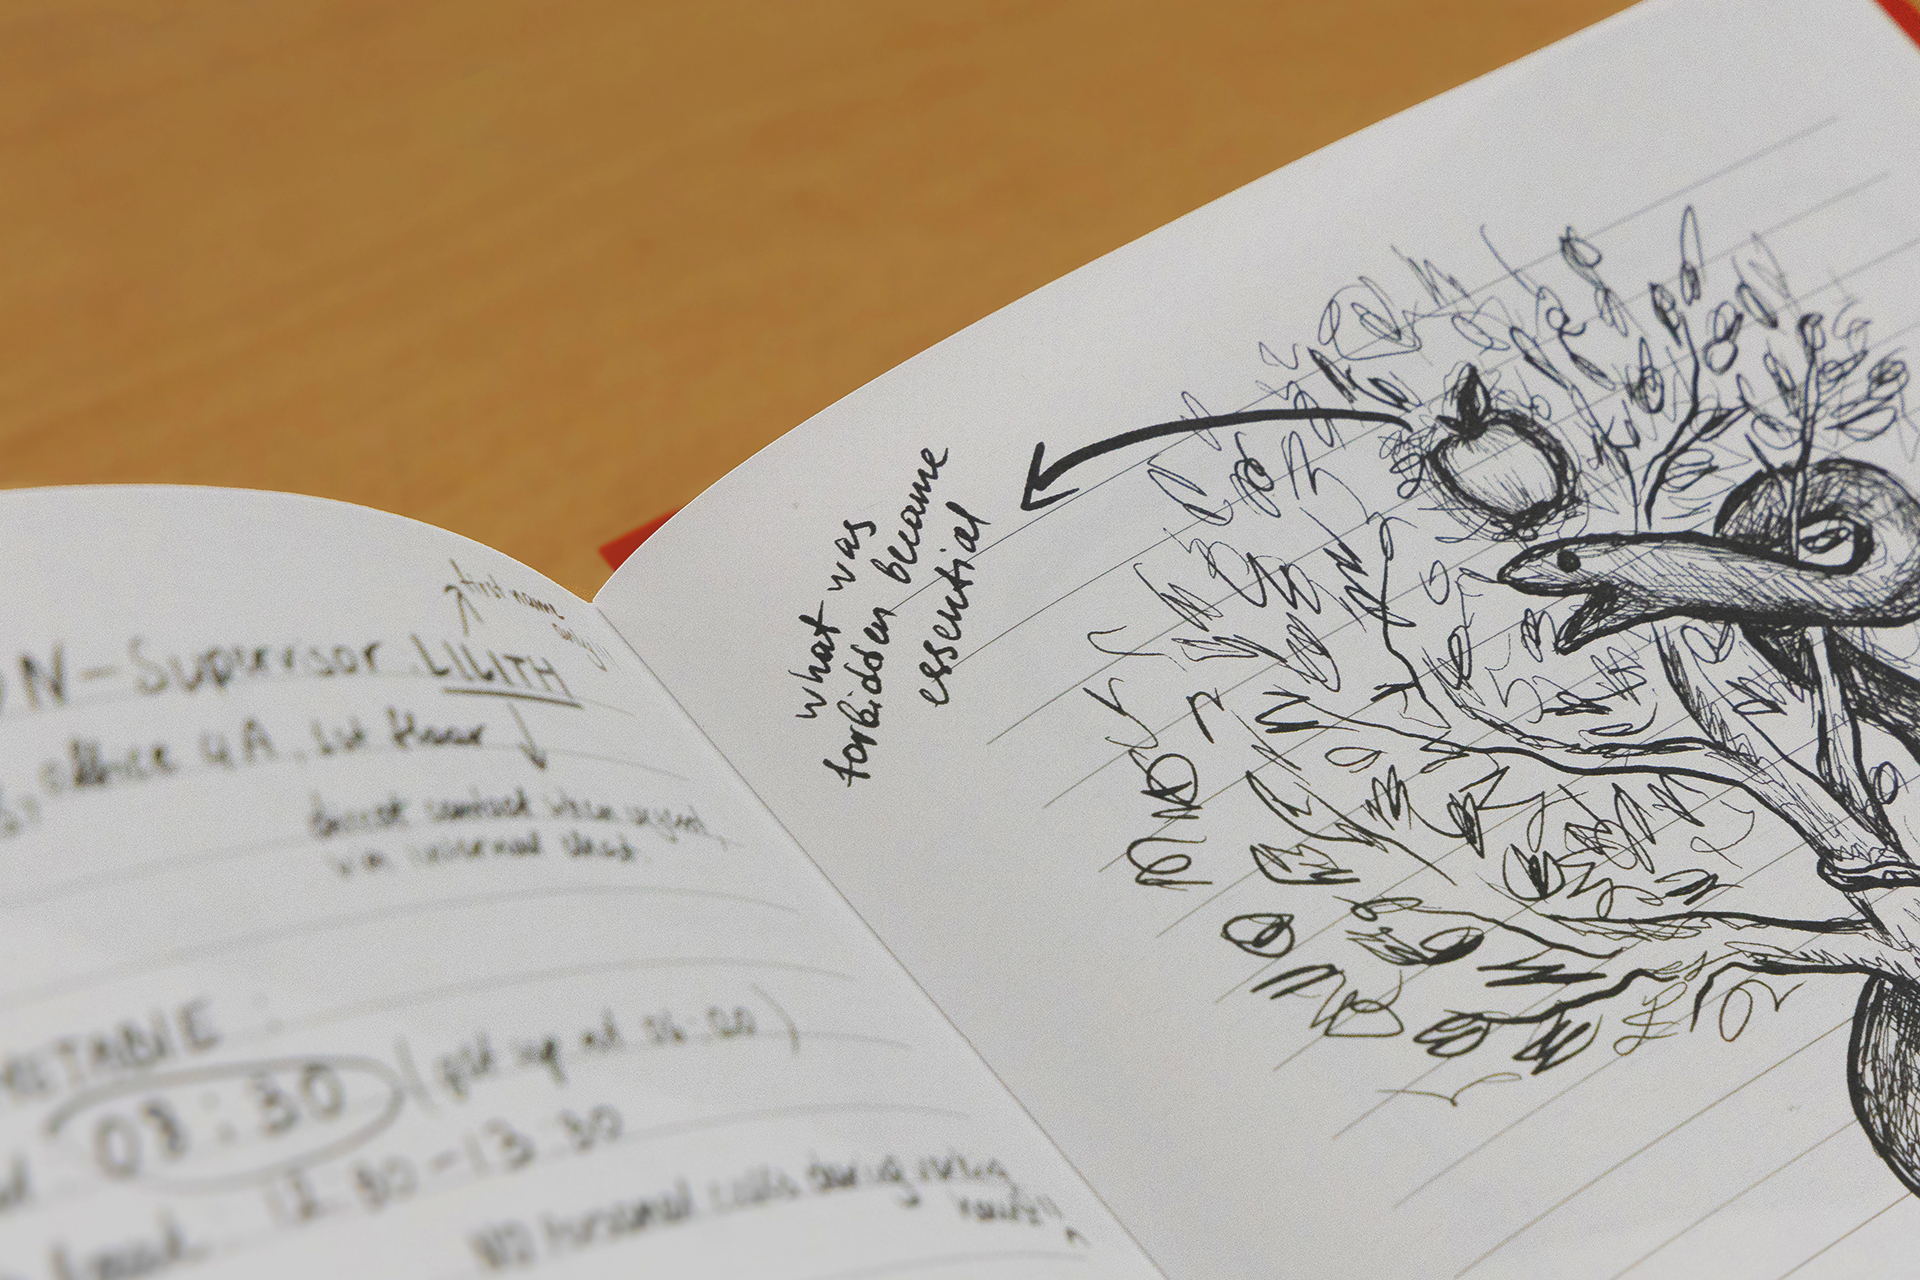 first name
only!!
N - Supervisor LILITH
office 4A, 1st floor
direct contact when urgent,
via internal chat.
METABLE:
08:30 (get up at 06:00)
12:30-13:30
NO personal calls during
hours!!
what was
forbidden became
essential